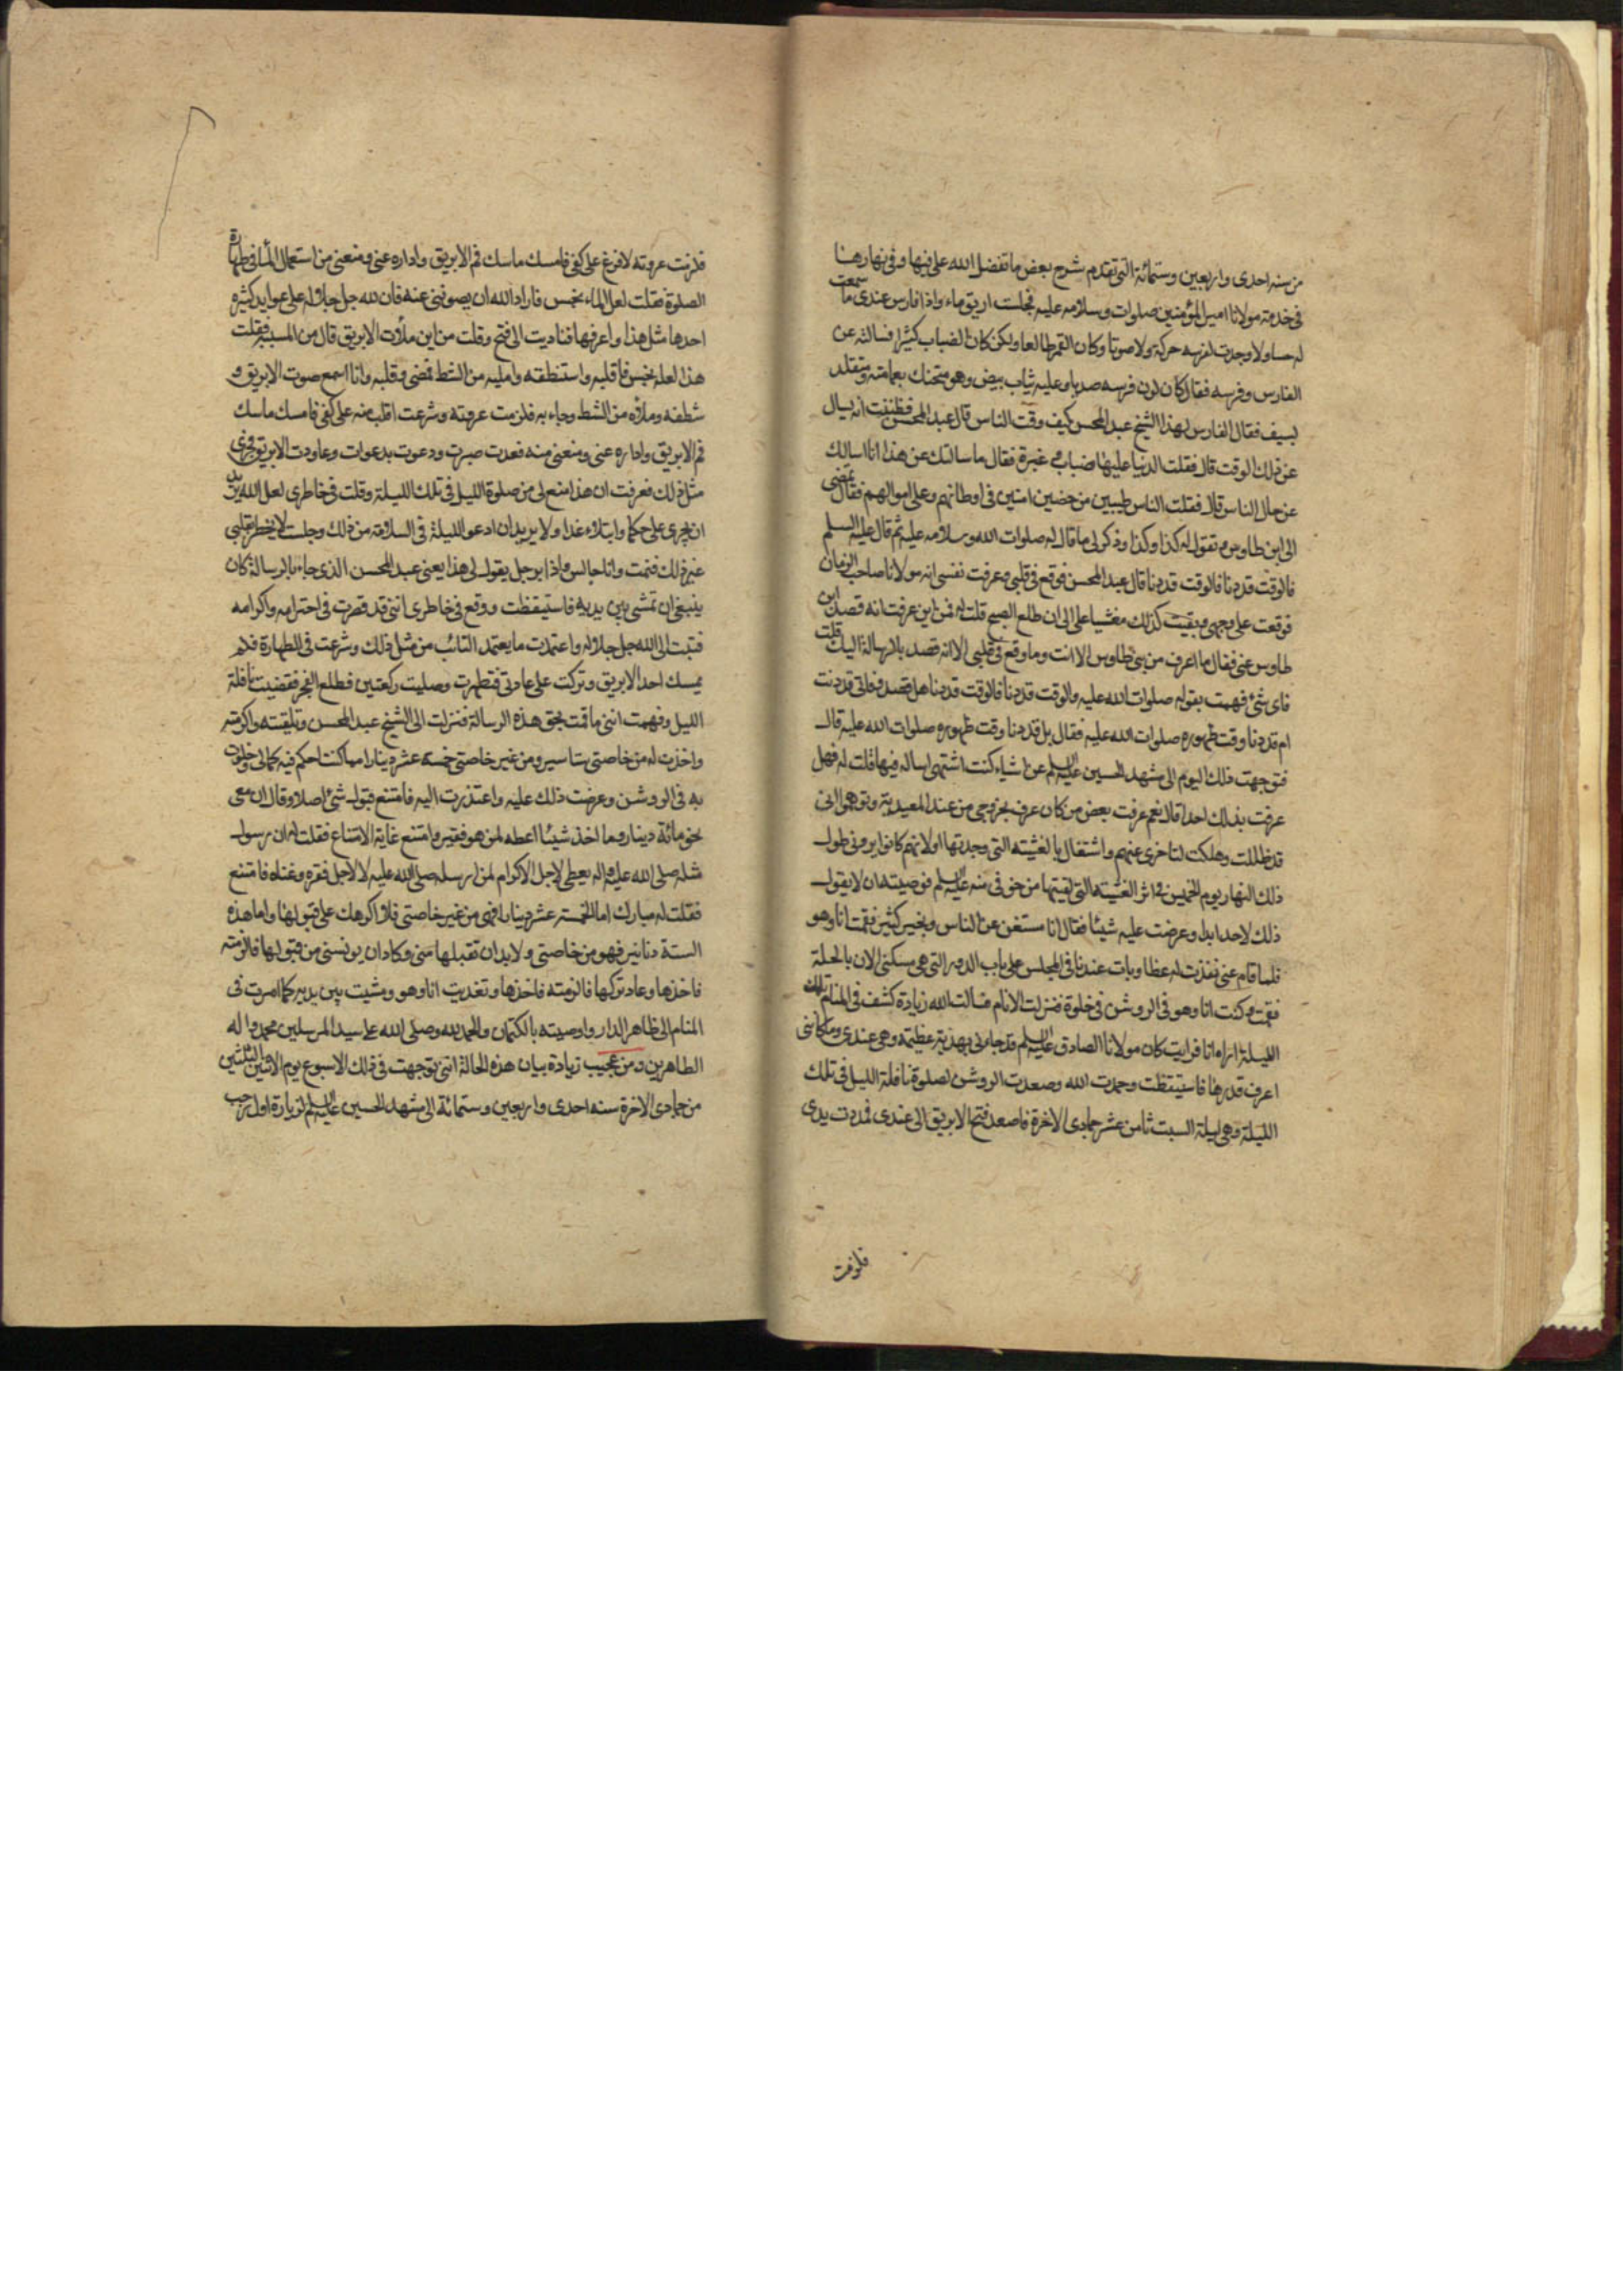 من سنه احدى واربعين وستمائة التى تقدم شرح بعض ما تفضل الله على فيها وفى نهارها
فى خدمة مولانا امير المؤمنين صلوات وسلامه عليه فجلست اريق ماء واذا فارس عندى ما سمعت
له حسا ولا وجدت لفرسه حركة ولا صوتا وكان القمر طالعا ولكن كان الضباب كثيرا فسالته عن
الفارس وفرسه فقال كان لون فرسه صديا وعليه ثياب بيض وهو متحنك بعمامته ومتقلد
بسيف فقال الفارس لهذا الشيخ عبد المحسن كيف وقت الناس قال عبد المحسن فظننت انه يسال
عن ذلك الوقت قال فقلت الدنيا عليها ضباب وغبرة فقال ما سالتك عن هذا انا سالتك
عن حال الناس قال فقلت الناس طيبين مرخصين امنين فى اوطانهم وعلى اموالهم فقال تمضى
الى ابن طاوس وتقول له كذا وكذا وذكر لى ما قال له صلوات الله وسلامه عليه ثم قال عليه السلم
فالوقت قد دنا فالوقت قد دنا قال عبد المحسن فوقع فى قلبى وعرفت نفسى انه مولانا صاحب الزمان
فوقعت على وجهى وبقيت كذلك مغشيا على الى ان طلع الصبح قلت له فمن اين عرفت انه قصد ابن
طاوس عنى فقال ما اعرف من بنى طاوس الا انت وما وقع فى قلبى الا انه قصد بالرسالة اليك قلت
فاى شئ فهمت بقوله صلوات الله عليه والوقت قد دنا فالوقت قد دنا هل قصد وفاتى قد دنت
ام قد دنا وقت ظهوره صلوات الله عليه فقال بل قد دنا وقت ظهوره صلوات الله عليه قال
فتوجهت ذلك اليوم الى مشهد الحسين عليه السلم عن اشياء كنت اشتهى اساله فيها فلت له فهل
عرفت بذلك احدا قال نعم عرفت بعض من كان عرف بخروجى من عند المعيدية وتوهموا انى
قد ظللت وهلكت لتاخرى عنهم واشتغال بالغشية التى وجدتها اولانهم كانوا يرونى طول
ذلك النهار يوم الخميس فى اثر الغشية التى لقيتها من خوفى منه عليه السلم فوصيته ان لا يقول
ذلك لاحد ابدا وعرضت عليه شيئا فقال انا مستغن عن الناس وبخير كثير فقمت انا وهو
فلما قام عنى نفذت له غطا وبات عندنا فى المجلس على باب الدور التى هى مسكنى الان بالحلة
فقمت وكنت انا وهو فى الروشن فى خلوة فنزلت لانام فسالت الله زيادة كشف فى المنام تلك
الليلة اراه انا فرايت كان مولانا الصادق عليه السلم قد جاءنى بهدية عظيمة وهى عندى وكاننى
اعرف قدرها فاستيقظت وحمدت الله وصعدت الروشن لصلوة نافلة الليل فى تلك
الليلة وهى ليلة السبت ثامن عشر جمادى الاخرة فاصعد فتح الابريق الى عندى فمددت يدى
فلزمت
فلزمت عروته لافرغ على كفى فامسك ماسك فم الابريق واداره عنى ومنعنى من استعمال الماء فى طهارة
الصلوة فقلت لعل الماء نجس فاراد الله ان يصوننى عنه فان لله جل جلاله على عوايد كثيره
احدها مثل هذا واعرفها فناديت الى فتح وقلت من اين ملأت الابريق قال من المسببة فقلت
هذا لعله نجس فاقلبه واستنظفه واملیه من الشط فمضى وقلبه وانا اسمع صوت الابريق و
شطفه وملاه من الشط وجاء به فلزمت عروته وشرعت اقلب منه على كفى فامسك ماسك
فم الابريق واداره عنى ومنعنى منه فعدت صبرت ودعوت بدعوات وعاودت الابريق وجرى
مثل ذلك فعرفت ان هذا منع لى من صلوة الليل فى تلك الليلة وقلت فى خاطرى لعل الله يريد
ان يجرى على حكما وابتلاء غدا ولا يريد ان ادعو الليلة فى السلامة من ذلك وجلست لا يخطر بقلبى
غير ذلك فنمت وانا جالس واذا برجل يقول لى هذا يعنى عبد المحسن الذى جاء بالرسالة كان
ينبغى ان تمشى بين يديه فاستيقظت ووقع فى خاطرى اننى قد قصرت فى احترامه واكرامه
فتبت الى الله جل جلاله واعتمدت ما يعتمد التائب من مثل ذلك وشرعت فى الطهارة فلم
يمسك احد الابريق وتركت على عادتى فتطهرت وصليت ركعتين فطلع الفجر فقضيت نافلة
الليل وفهمت اننى ما قمت بحق هذه الرسالة فنزلت الى الشيخ عبد المحسن وتلقيته واكرمته
واخذت له من خاصتى ستاسير ومن غير خاصتى خمسة عشر دينارا مما كنت احكم فيه كمالى وخلوت
به فى الروشن وعرضت ذلك عليه واعتذرت اليه فامتنع قبول شئ اصلا وقال ان معى
نحو مائة دينار وما اخذ شيئا اعطه لمن هو فقير وامتنع غاية الامتناع فقلت له ان رسول
مثله صلى الله عليه واله يعطى لاجل الاكرام لمن ارسله صلى الله عليه لا لاجل فقره وغناه فامتنع
فقلت له مبارك اما الخمسة عشر دينارا فهى من غير خاصتى فلا اكرهك على قبولها واما هذه
الستة دنانير فهو من خاصتى ولا بد ان تقبلها منى وكاد ان يونسنى من قبولها فالزمته
فاخذها وعاد تركها فالزمته فاخذها وتغديت انا وهو ومشيت بين يديه كما امرت فى
المنام الى ظاهر الدار واوصيته بالكتمان والحمد لله وصلى الله على سيد المرسلين محمد واله
الطاهرين ومن عجيب زيادة بيان هذه الحالة اننى توجهت فى ذلك الاسبوع يوم الاثنين والثلثين
من جمادى الاخرة سنه احدى واربعين وستمائة الى مشهد الحسين عليه السلم لزيارة اول رجب